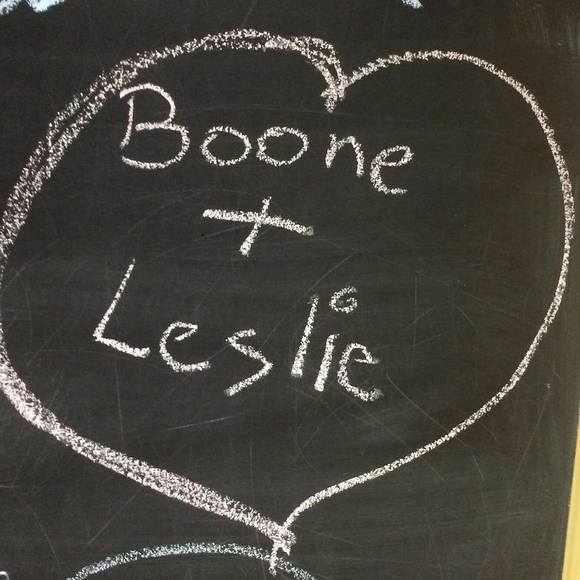 Boone
+
Leslie